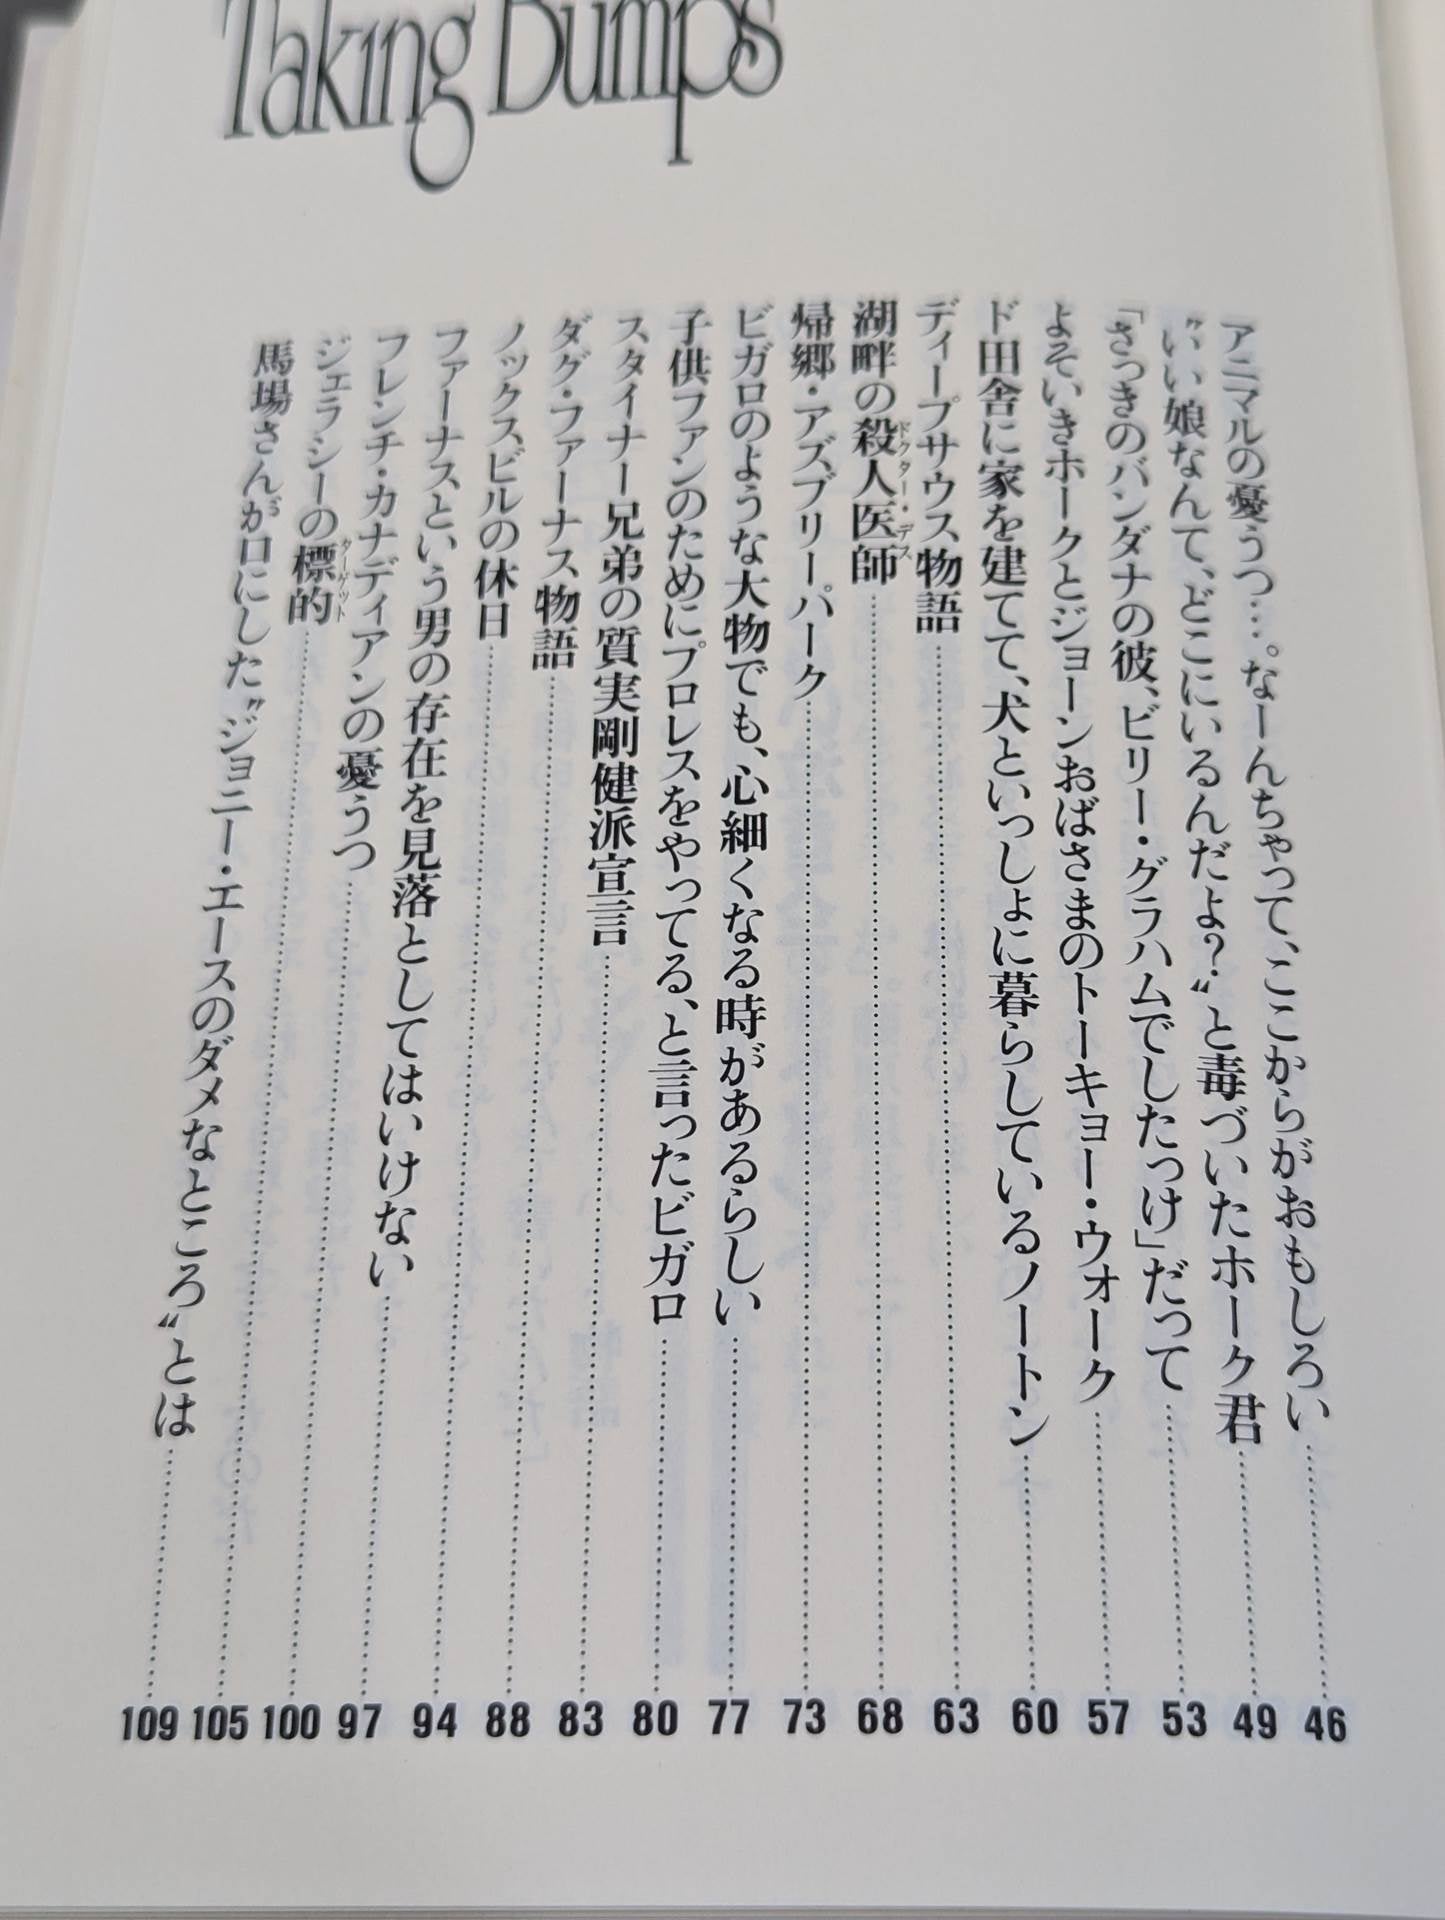 Taking Bumps
アニマルの憂うつ…。なーんちゃって、ここからがおもしろい……46
〝いい娘なんて、どこにいるんだよ？〟と毒づいたホーク君……49
「さっきのバンダナの彼、ビリー・グラハムでしたっけ」だって……53
よそいきホークとジョーンおばさまのトーキョー・ウォーク……57
ド田舎に家を建てて、犬といっしょに暮らしているノートン……60
ディープサウス物語……63
湖畔の殺人医師（ドクター・デス）……68
帰郷・アズブリーパーク……73
ビガロのような大物でも、心細くなる時があるらしい……77
子供ファンのためにプロレスをやってる、と言ったビガロ……80
スタイナー兄弟の質実剛健派宣言……83
ダグ・ファーナス物語……88
ノックスビルの休日……94
ファーナスという男の存在を見落としてはいけない……97
フレンチ・カナディアンの憂うつ……100
ジェラシーの標的（ターゲット）……105
馬場さんが口にした〝ジョニー・エースのダメなところ〟とは……109